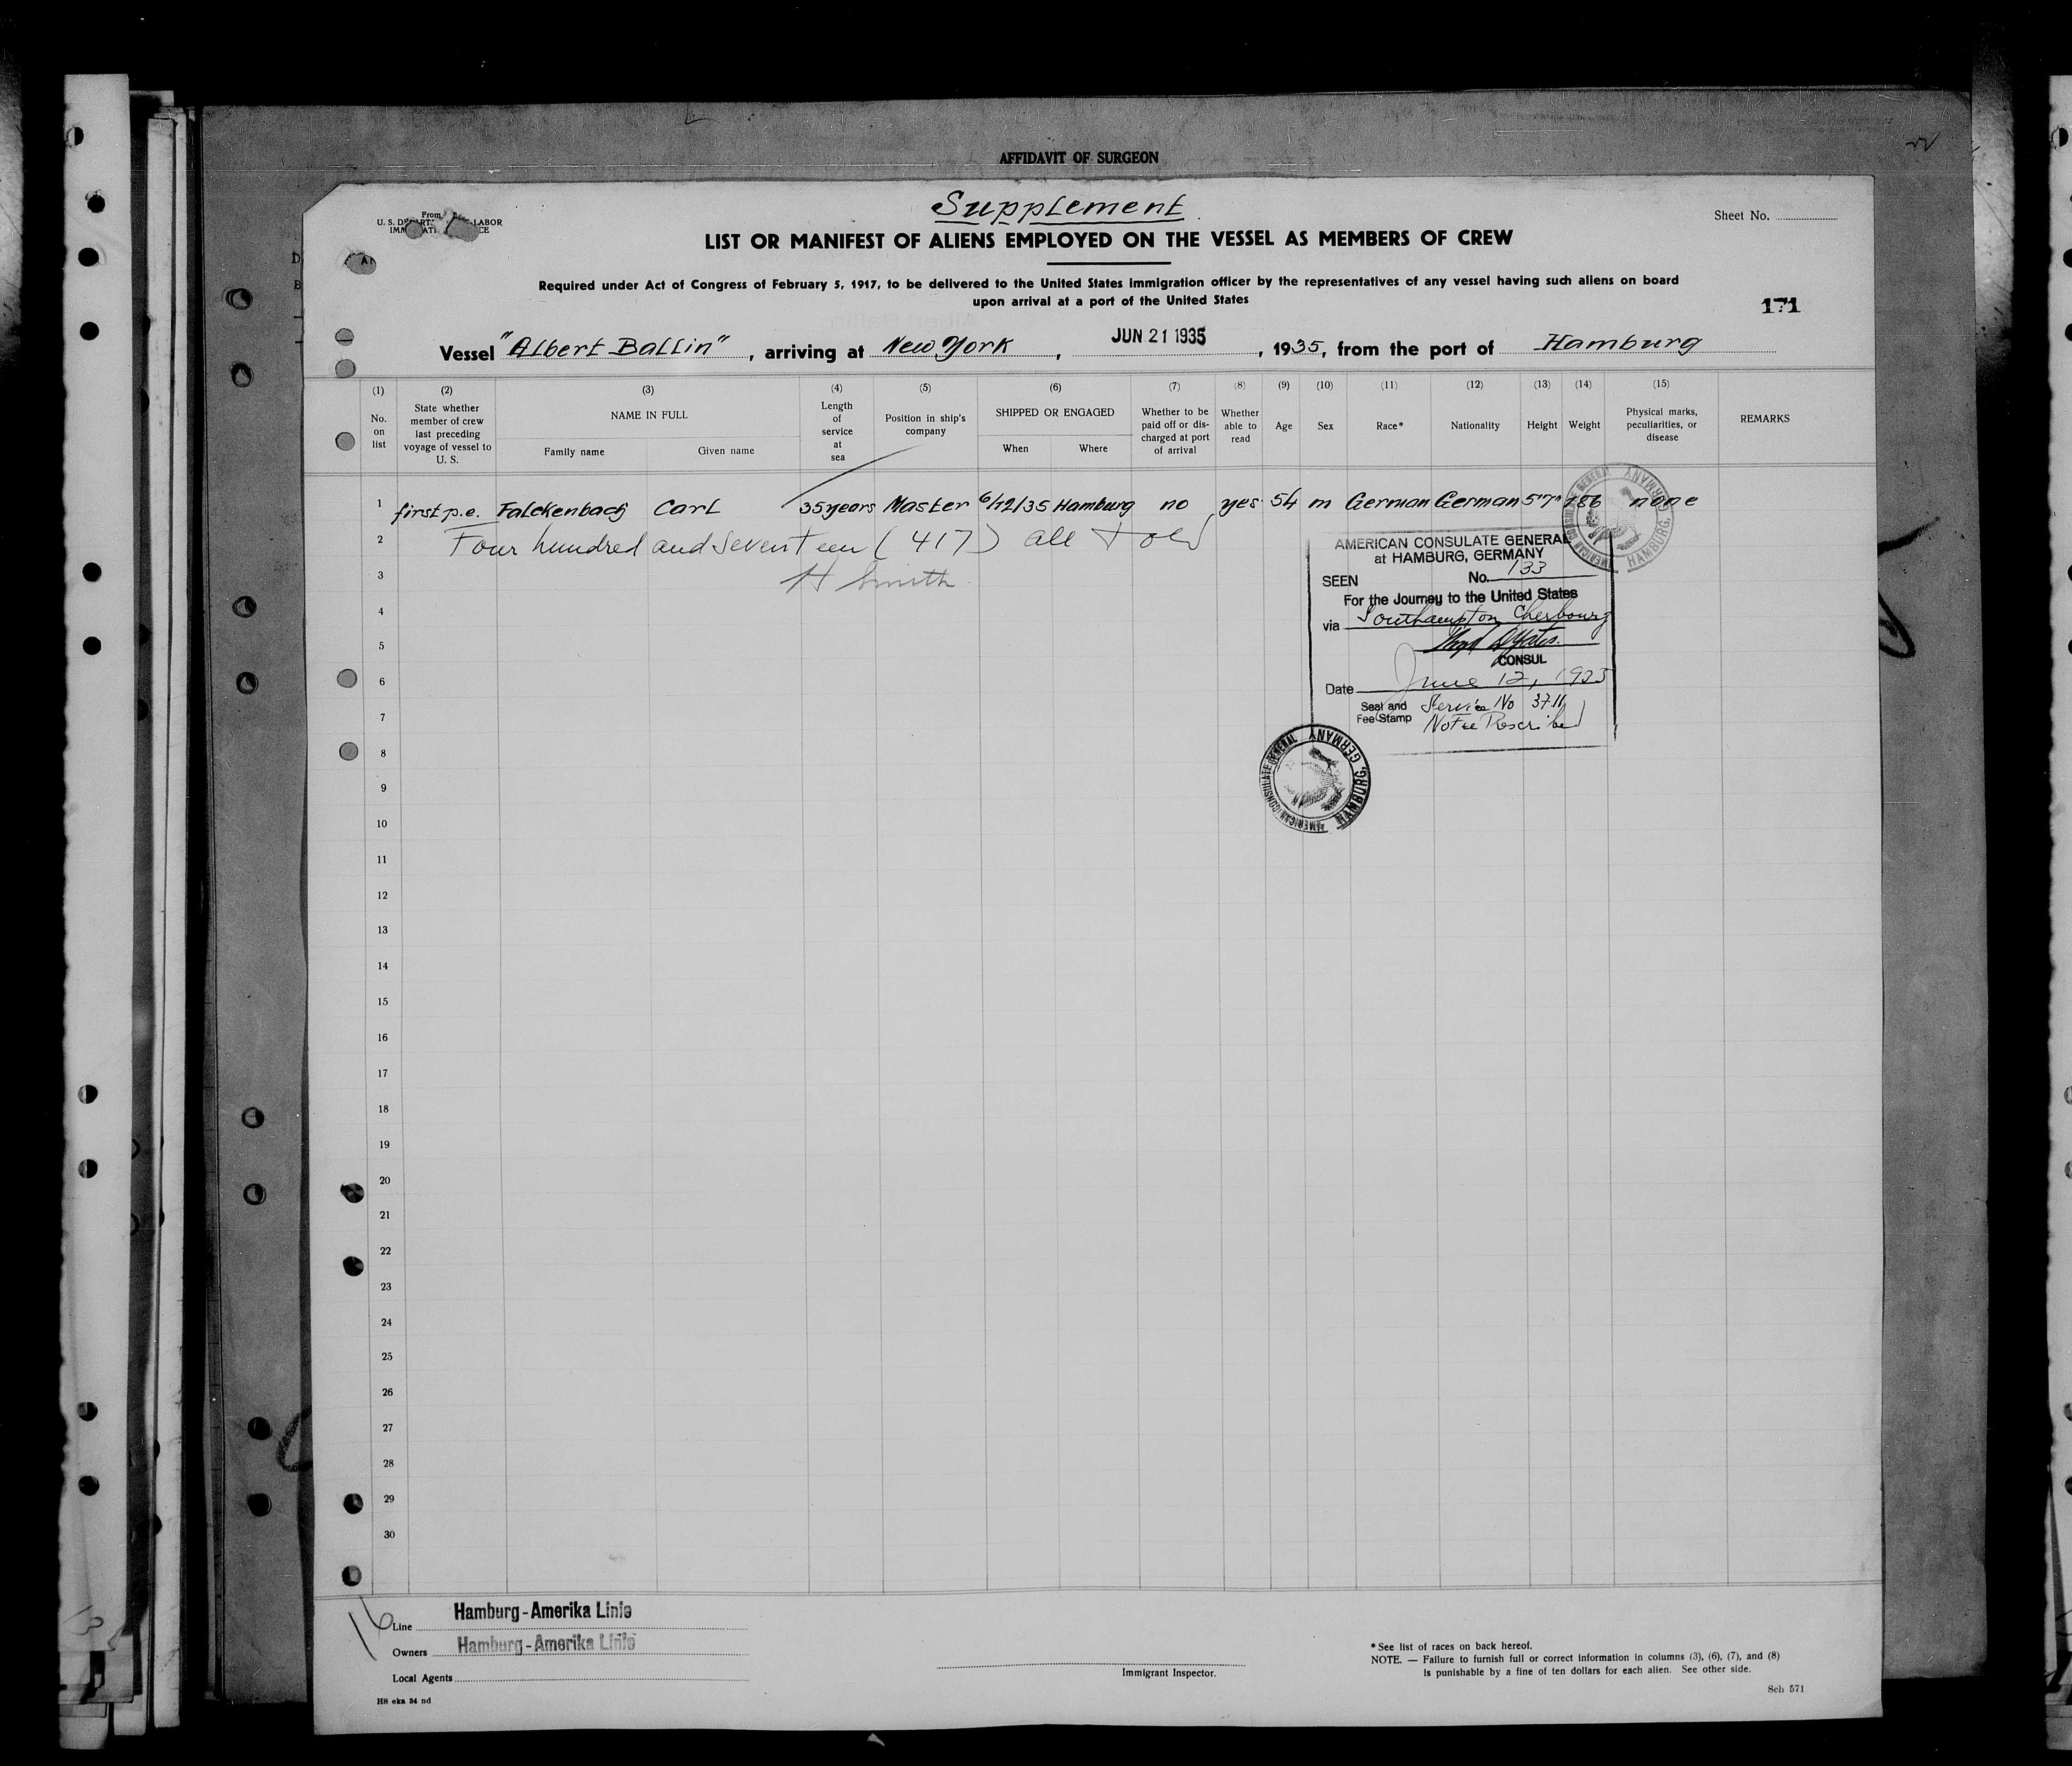 AFFIDAVIT OF SURGEON
Supplement
Sheet No.
LIST OR MANIFEST OF ALIENS EMPLOYED ON THE VESSEL AS MEMBERS OF CREW
Required under Act of Congress of February 5, 1917, to be delivered to the United States immigration officer by the representatives of any vessel having such aliens on board
upon arrival at a port of the United States
171
Vessel "Albert Ballin", arriving at New York, JUN 21 1935, 1935, from the port of Hamburg
(1) (2) (3) (4) (5) (6) (7) (8) (9) (10) (11) (12) (13) (14) (15)
No. on list
State whether member of crew last preceding voyage of vessel to U. S.
NAME IN FULL
Family name
Given name
Length of service at sea
Position in ship's company
SHIPPED OR ENGAGED
When
Where
Whether to be paid off or discharged at port of arrival
Whether able to read
Age
Sex
Race*
Nationality
Height
Weight
Physical marks, peculiarities, or disease
REMARKS
1 first p.e. Falckenbach Carl 35 years Master 6/12/35 Hamburg no yes 54 m German German 5'7" 186 none
2 Four hundred and seventeen (417) all told
3 H Smith
4
5
6
7
8
9
10
11
12
13
14
15
16
17
18
19
20
21
22
23
24
25
26
27
28
29
30
AMERICAN CONSULATE GENERAL
at HAMBURG, GERMANY
SEEN No. 133
For the Journey to the United States
via Southampton Cherbourg
CONSUL
Date June 12, 1935
Seal and Fee Stamp
Service No 3711
No Fee Prescribed
AMERICAN CONSULATE GENERAL HAMBURG, GERMANY
AMERICAN CONSULATE GENERAL HAMBURG, GERMANY
16
Line Hamburg-Amerika Linie
Owners Hamburg-Amerika Linie
Local Agents
H8 eka 34 nd
Immigrant Inspector.
*See list of races on back hereof.
NOTE. — Failure to furnish full or correct information in columns (3), (6), (7), and (8)
is punishable by a fine of ten dollars for each alien. See other side.
Sch 571